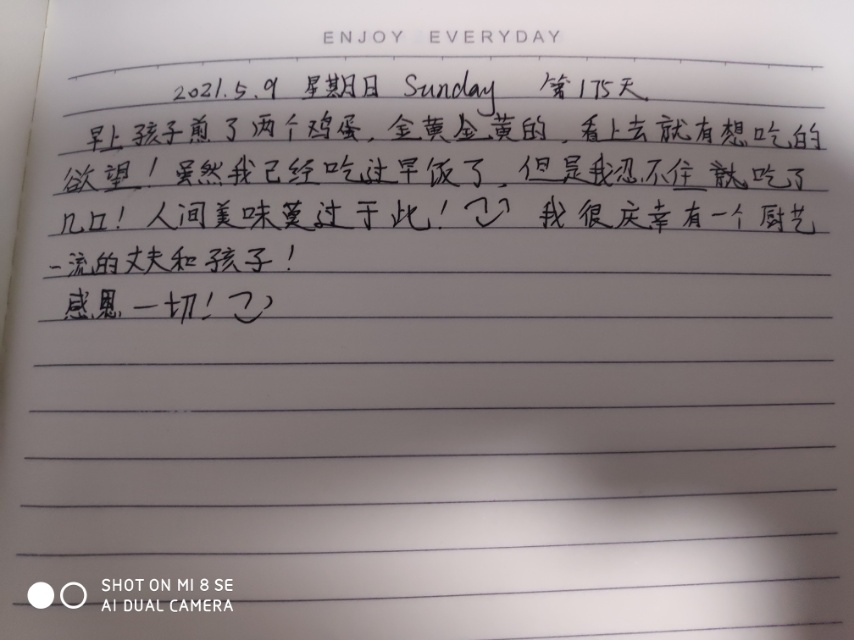 ENJOY EVERYDAY
2021.5.9 星期日 Sunday 第175天
早上孩子煎了两个鸡蛋，金黄金黄的，看上去就有想吃的
欲望！虽然我已经吃过早饭了，但是我忍不住就吃了
几口！人间美味莫过于此！我很庆幸有一个厨艺
一流的丈夫和孩子！
感恩一切！
SHOT ON MI 8 SE
AI DUAL CAMERA